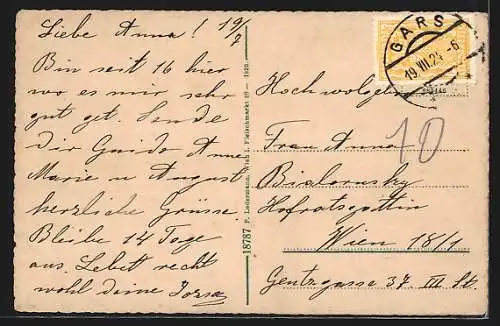 Liebe Anna! 19/7
Bin seit 16 hier
wo es mir sehr
gut get. Sende
dir Guido Anne
Marie u August
herzliche Grüsse.
Bleibe 14 Tage
aus. Lebet recht
wohl deine
18787 P. Ledermann, Wien I, Fleischmarkt
GARS
19.VII.24.-6
Hochwolgeb
Frau Anna
Hofratsgattin
Wien 18/1
Gentzgasse 37 III St.
10